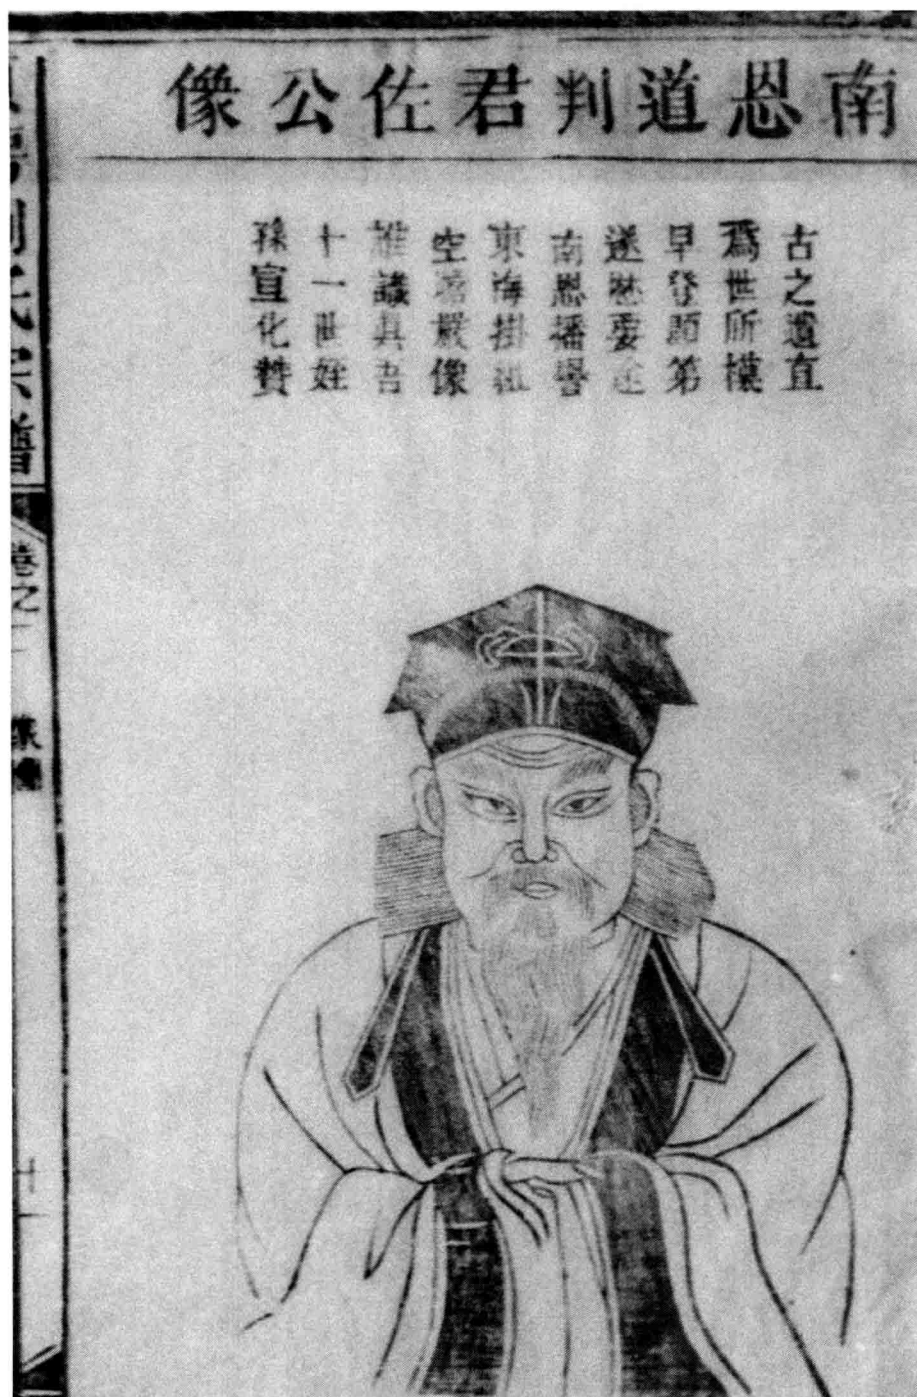 南恩道判君佐公像
古之遺直
為世所模
早登顯第
遂歷要途
南恩播譽
東海掛弧
空瞻嚴像
誰議真吾
十一世姪
孫宣化贊
劉氏宗譜
卷之
像贊